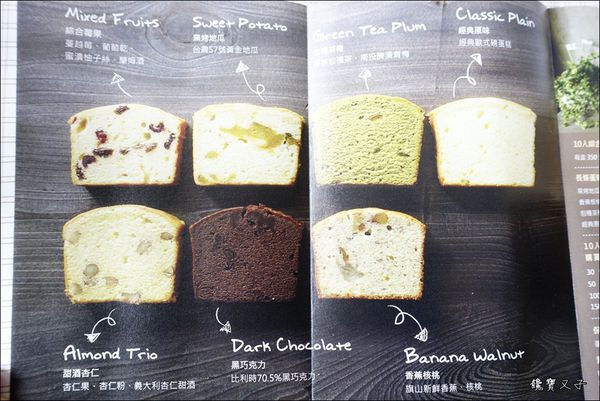 Mixed Fruits
綜合莓果
蔓越莓、葡萄乾
蜜漬柚子絲、蘭姆酒
Sweet Potato
窯烤地瓜
台農57號黃金地瓜
Green Tea Plum
Classic Plain
經典原味
經典歐式磅蛋糕
Almond Trio
甜酒杏仁
杏仁果、杏仁粉、義大利杏仁甜酒
Dark Chocolate
黑巧克力
比利時70.5%黑巧克力
Banana Walnut
香蕉核桃
旗山新鮮香蕉、核桃
10人
每盒 350
長條蛋
窯烤地瓜
香蕉核桃
經典原
10人
購買
30
50
100
150